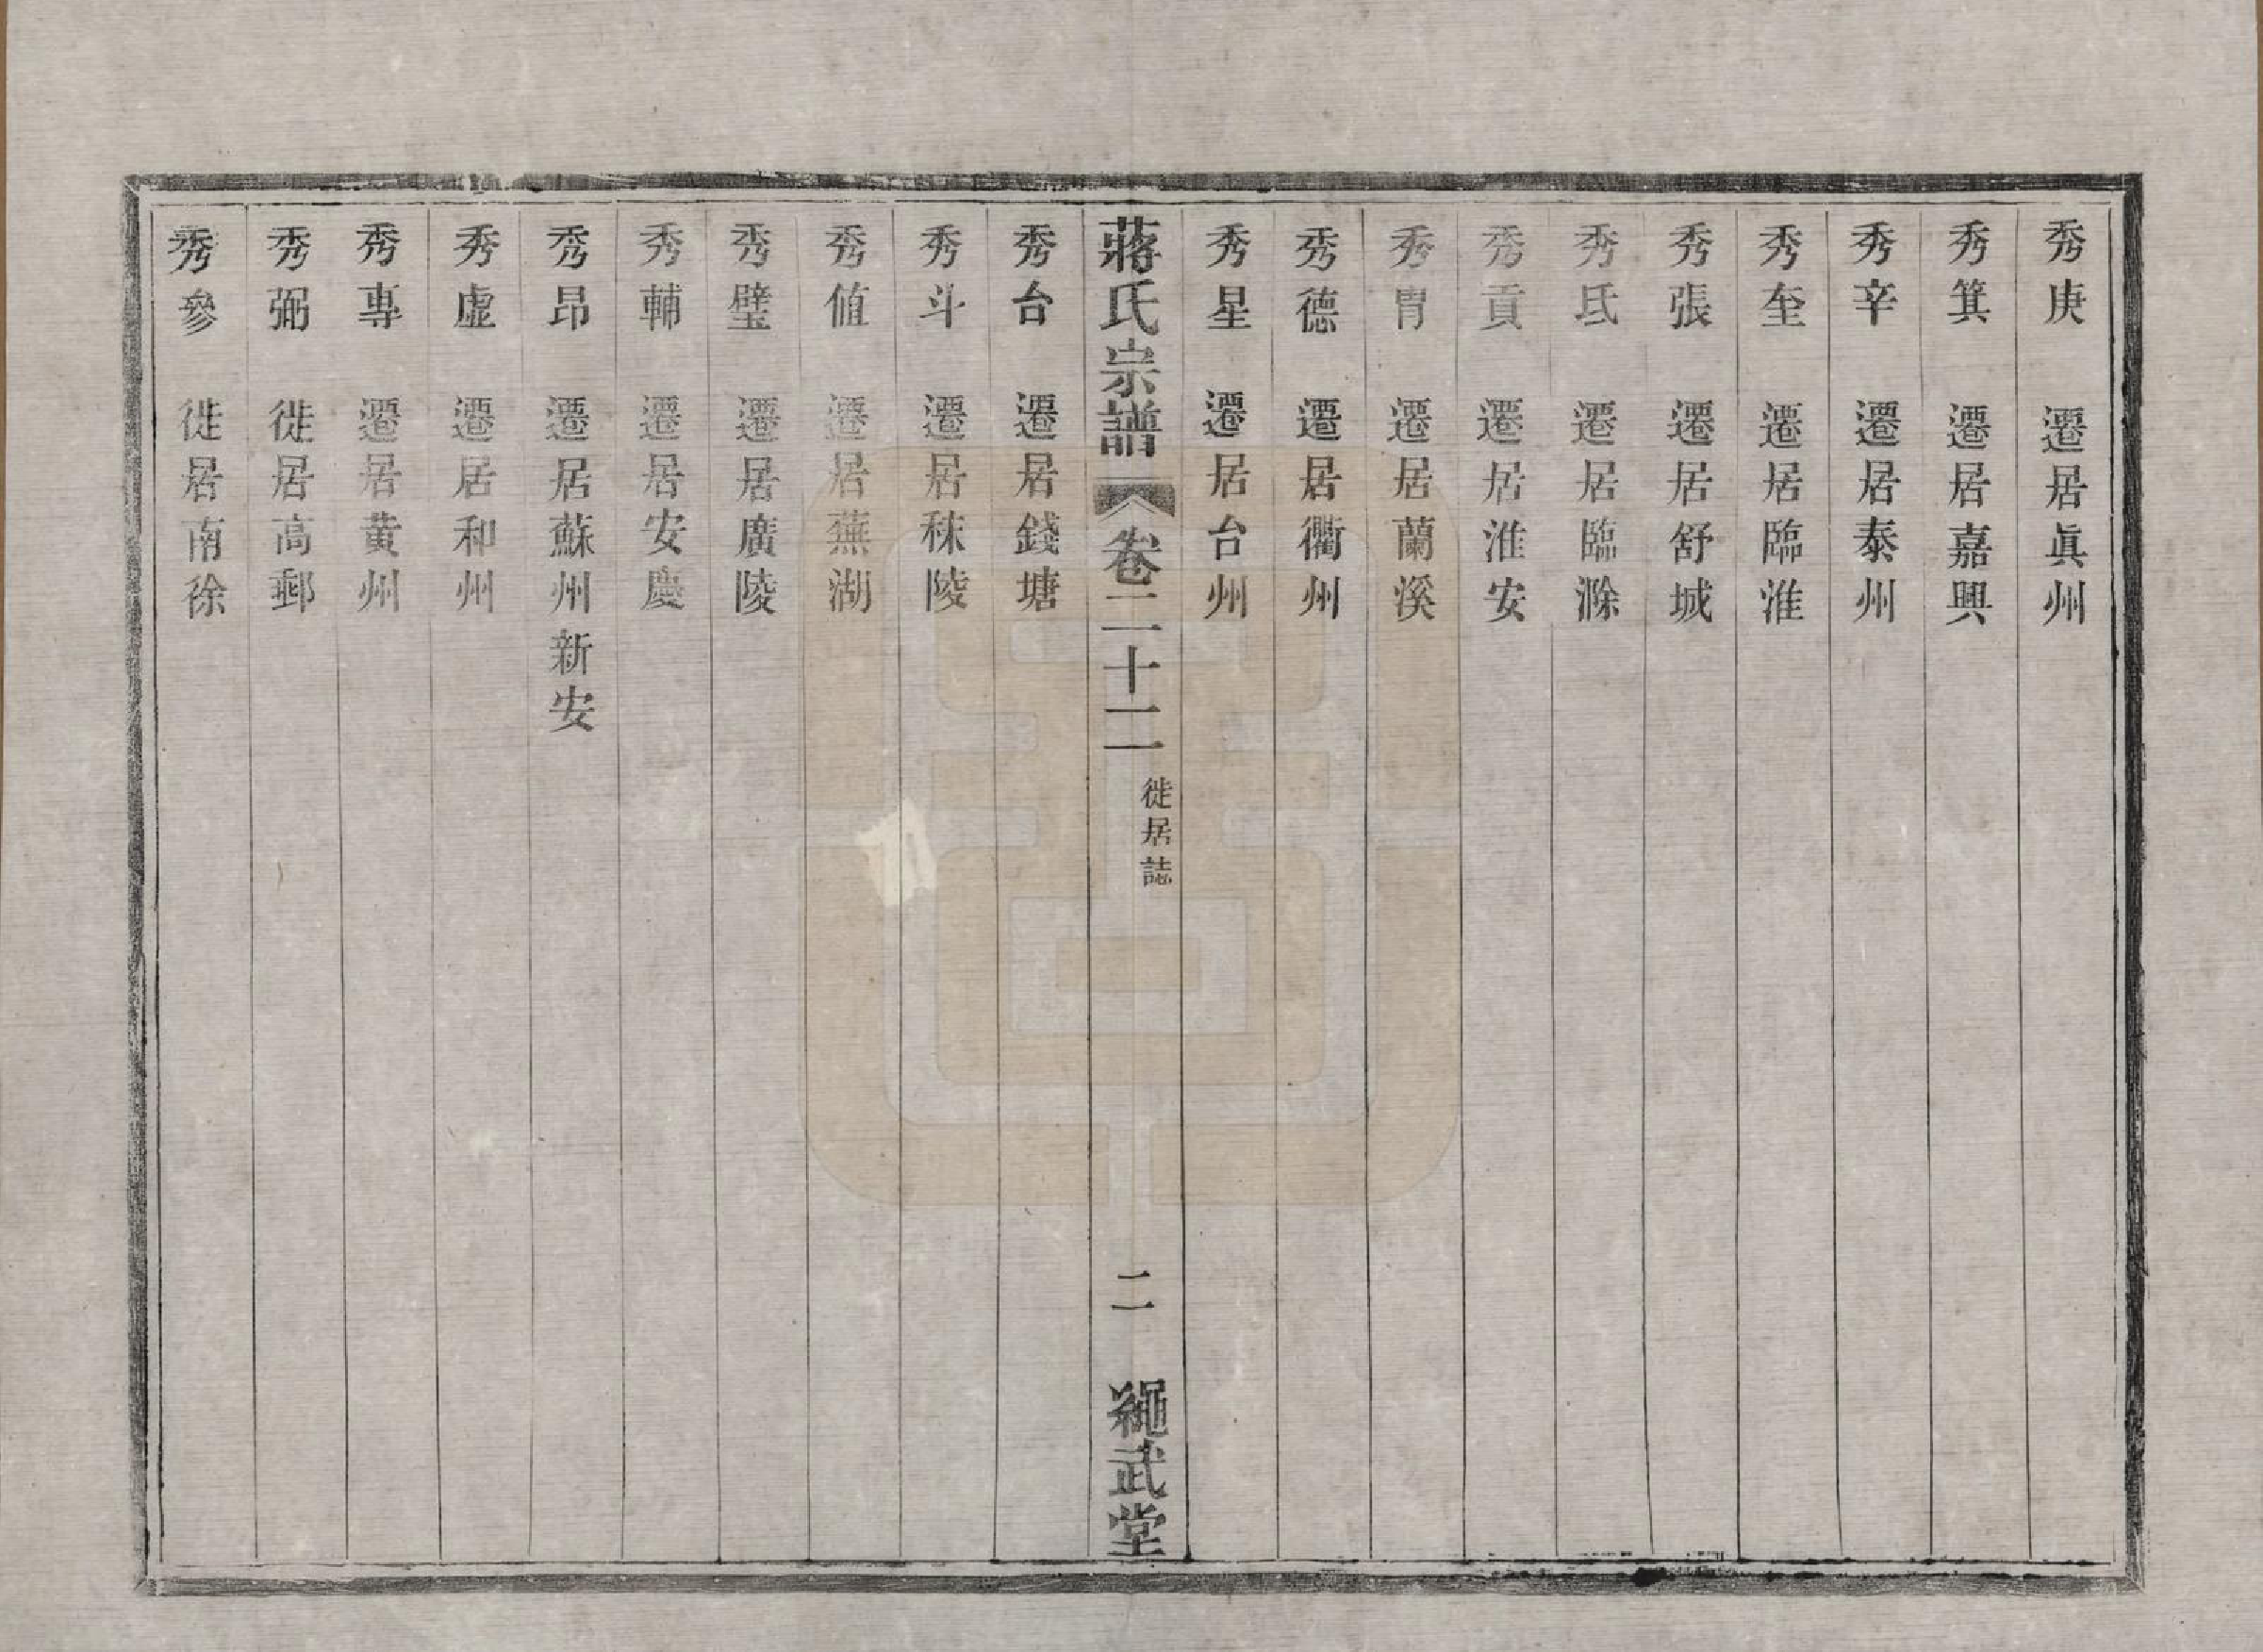 秀庚 遷居眞州
秀箕 遷居嘉興
秀辛 遷居泰州
秀奎 遷居臨淮
秀張 遷居舒城
秀氐 遷居臨滁
秀貢 遷居淮安
秀胃 遷居蘭溪
秀德 遷居衢州
秀星 遷居台州
蔣氏宗譜 卷二十二 徙居誌 二 繩武堂
秀台 遷居錢塘
秀斗 遷居秣陵
秀值 遷居蕪湖
秀璧 遷居廣陵
秀輔 遷居安慶
秀昂 遷居蘇州新安
秀虛 遷居和州
秀專 遷居黃州
秀弼 徙居高郵
秀參 徙居南徐